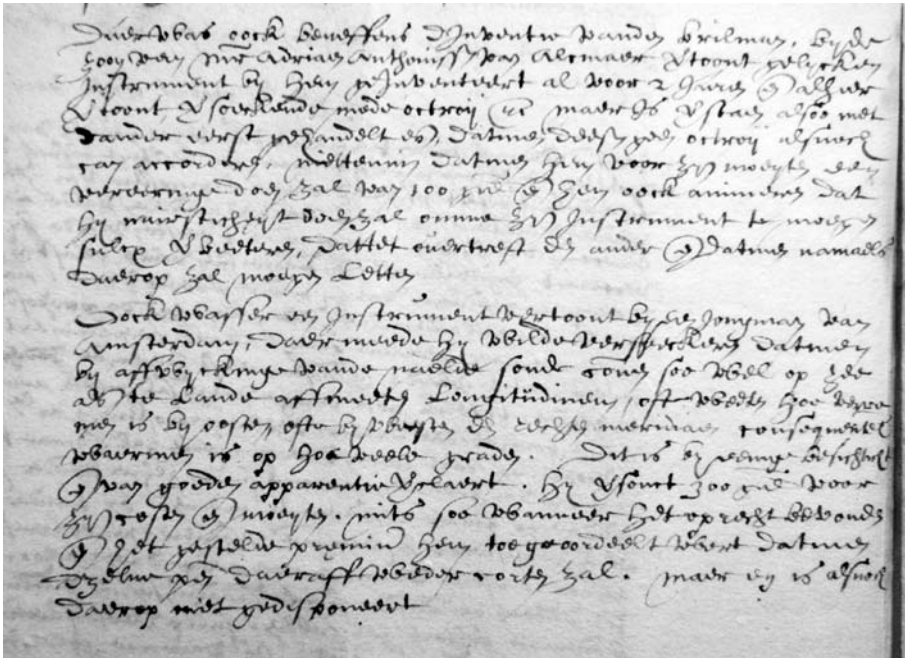 Daer was oock beneffens d'Inventie vanden brilman, by de
zoon van Mr Adriaen Anthonissz van Alcmaer vertoont gelycken
Instrument by hem geinventeert al voor 2 Jaeren en alhier
vertoont versoeckende mede octroij etc maer Is verstaen alsoo met
dander eerst gehandelt es, datmen desen geen octroij alsnoch
can accorderen, niettemin datmen hem voor zyn moeyten een
vereeringe doen zal van 100 gul en hem oock animeren dat
hy naersticheyt doen zal omme zyn Instrument te moegen
sulcx verbeteren, dattet overtreft den ander en datmen namaels
daerop zal moegen Letten
Oock wasser een Instrument vertoont by een Jongman van
Amsterdam, daer meede hy wilde verseeckeren datmen
by affwyckinge vande naelde soude conen soe wel op zee
als te Lande affmeeten Longitudinem, oft weeten hoe verre
men is by oosten ofte by westen den rechten meridiaen consequentel
waermen is op hoe veele graden. Dit is by eenige besichticht
en van goeden apparentie verclaert. Hy versouct 300 gul voor
zyn costen en moeyten. mits soe wanneer het oprecht bevonden
en het gestelde premium hem toegeoordeelt wert datmen
dzelve pen daeraff weder corten zal. maer en is alsnoch
daerop niet gedisponeert